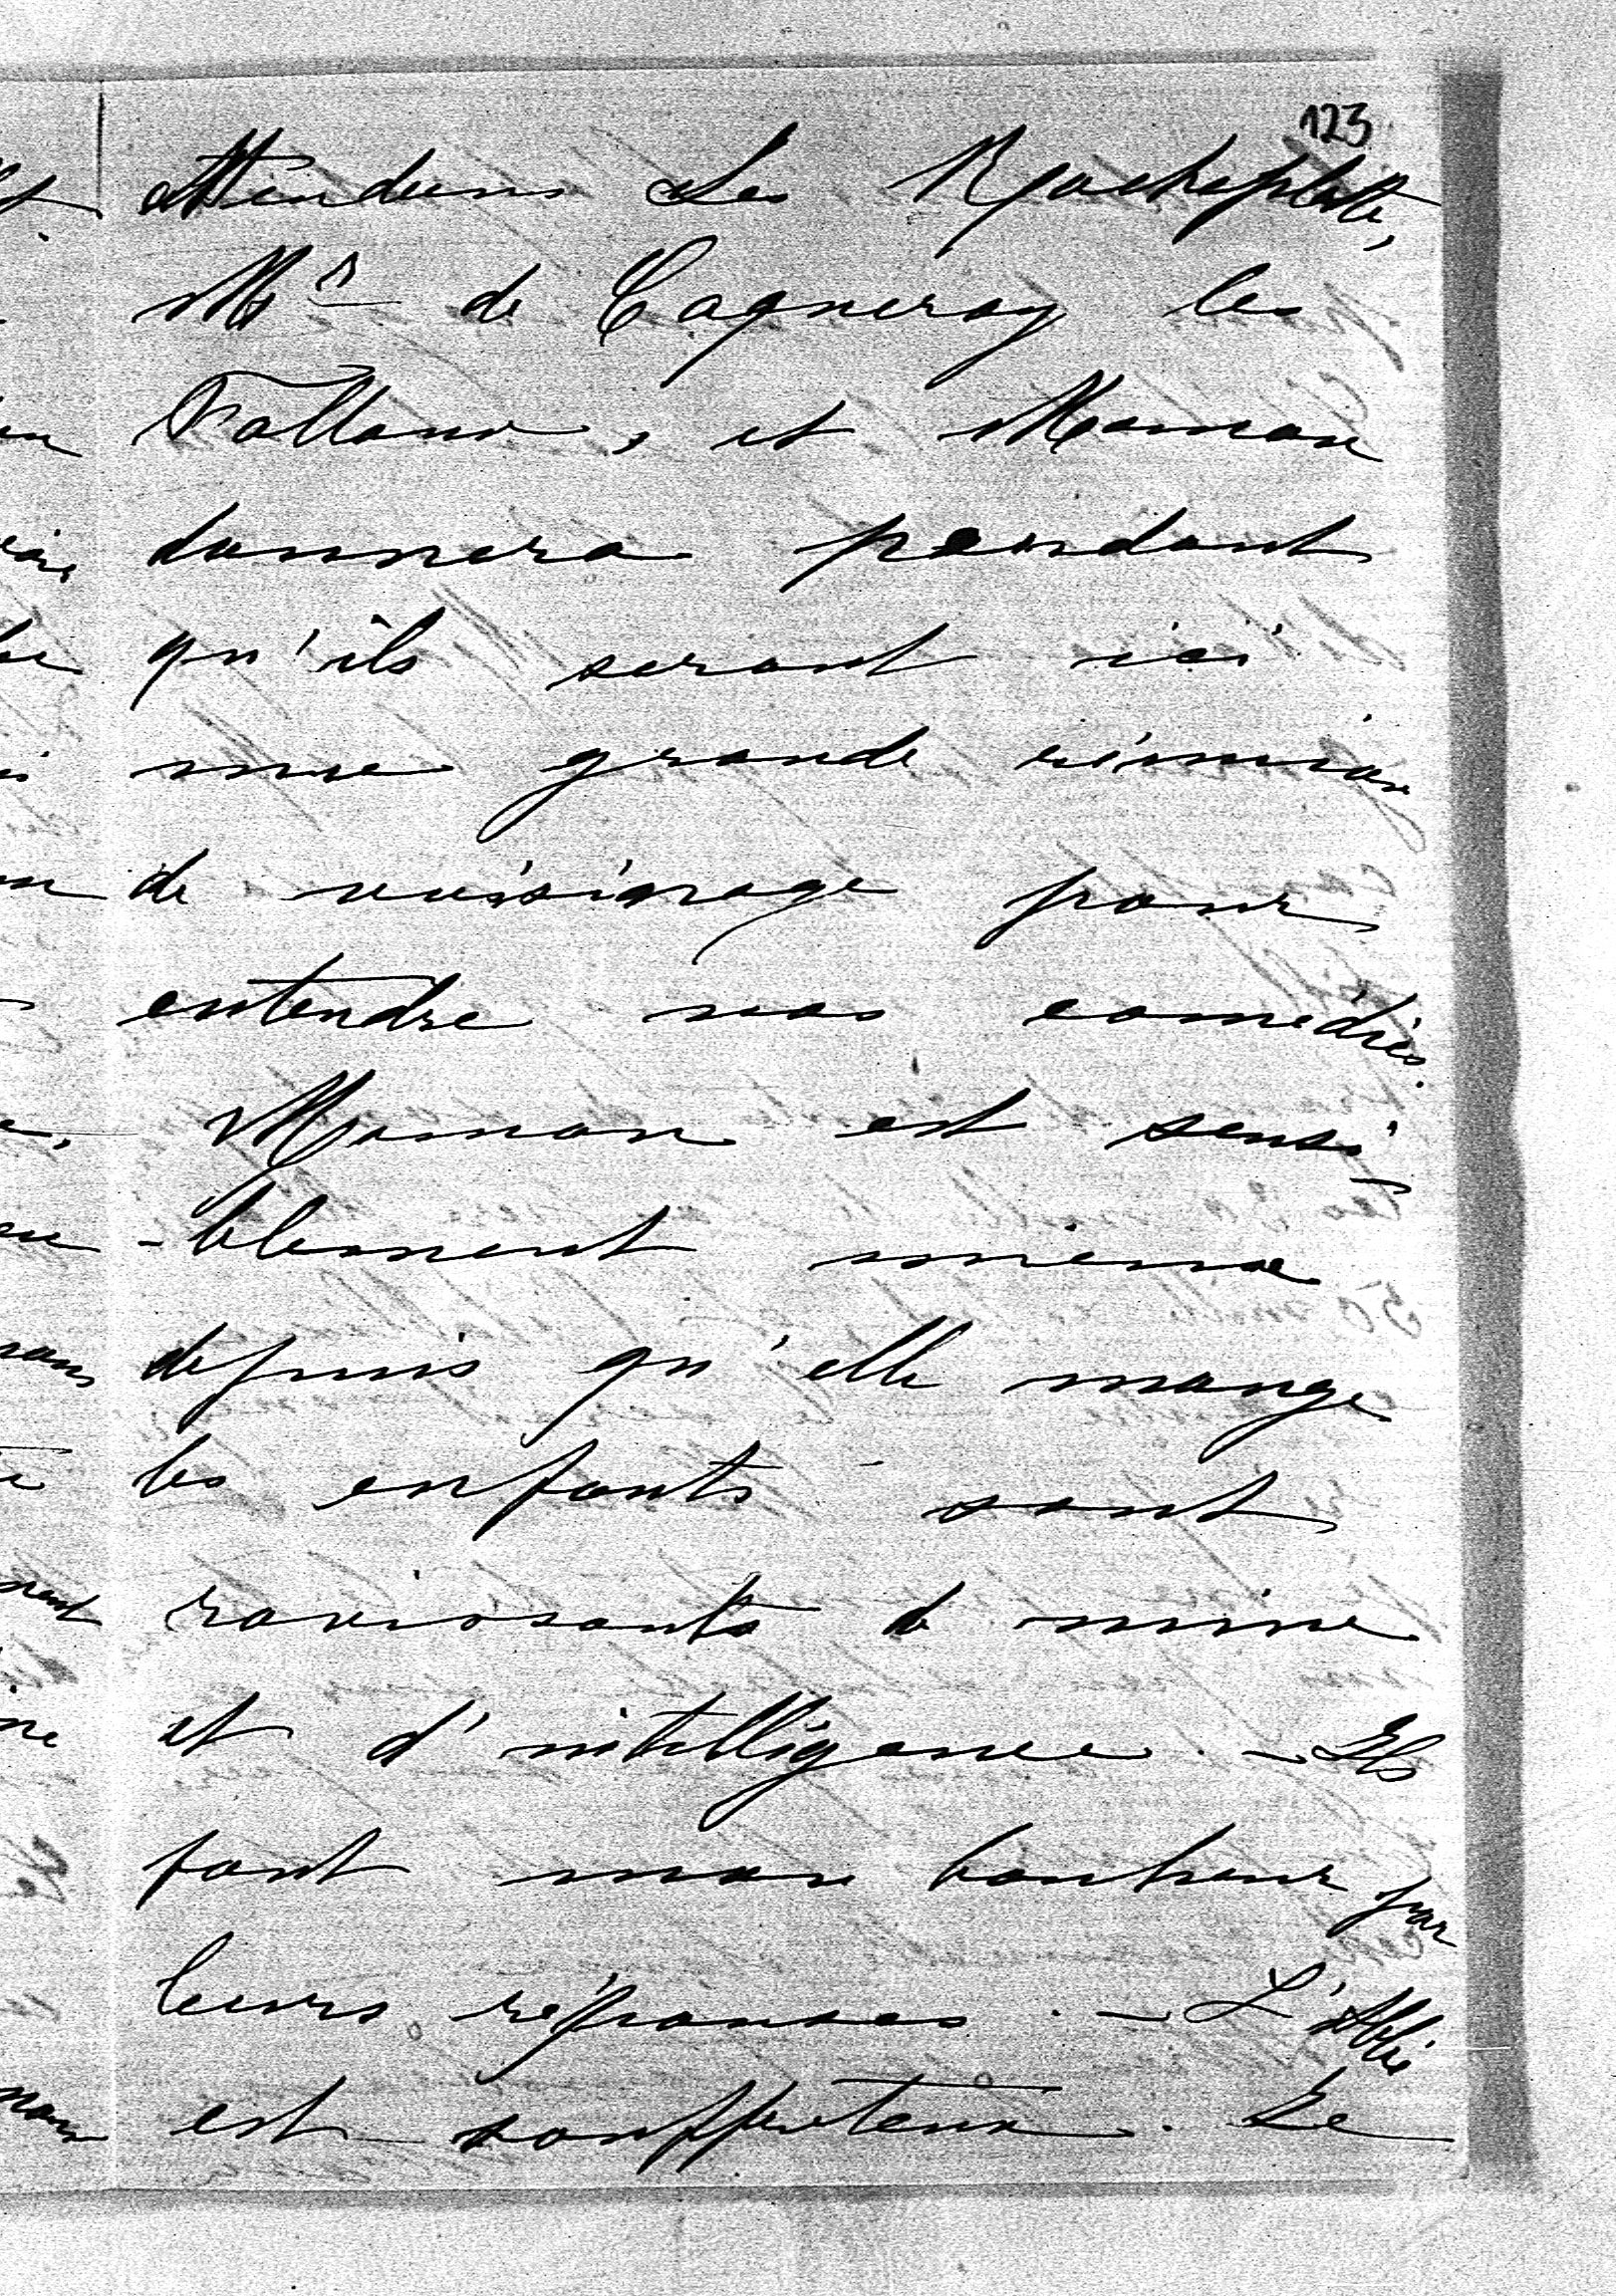 123
attendons Les Rocheplatte,
Mr de Cagneray les
Falland, et Maman
donnera pendant
qu'ils seront ici
une grande réunion
de voisinage pour
entendre nos comédies.
Maman est sensi
-blement mieux
depuis qu'elle mange
les enfants sont
ravissants de mine
et d'intelligence. – Ils
font mon bonheur par
leurs réponses. – L'Abbé
est souffreteux. Le